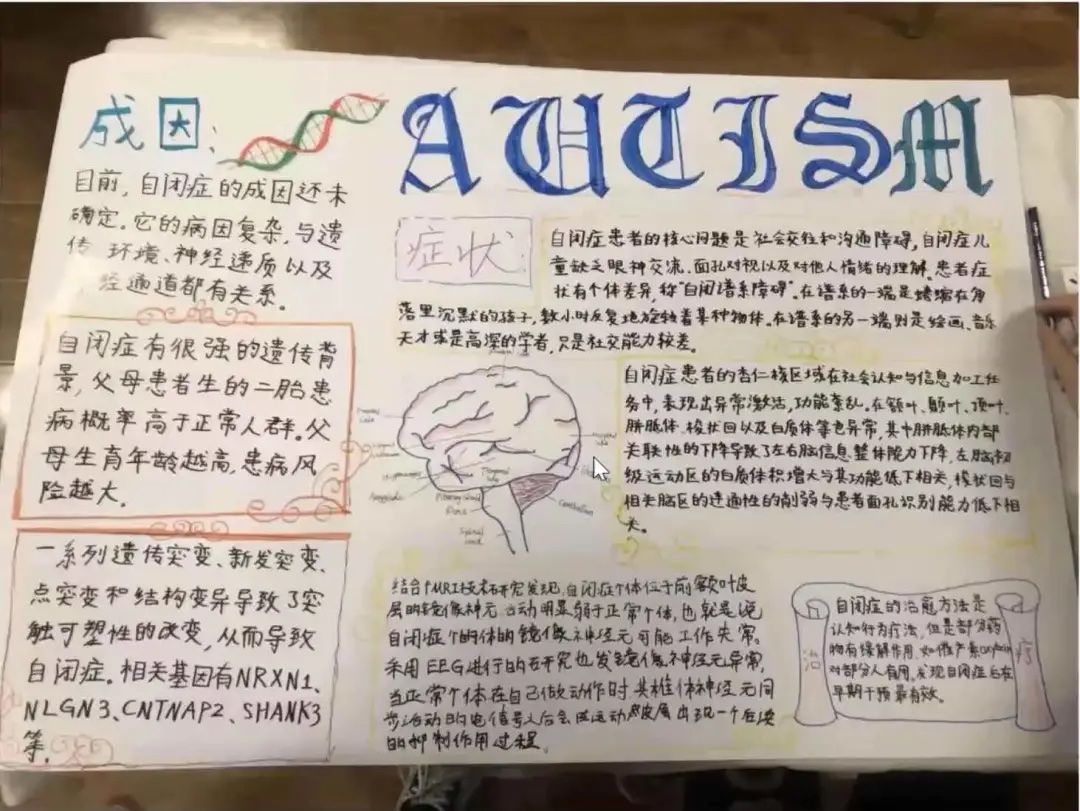 AUTISM
成因：
目前，自闭症的成因还未
确定。它的病因复杂，与遗
传、环境、神经递质以及
经通道都有关系。
自闭症有很强的遗传背
景，父母患者生的二胎患
病概率高于正常人群。父
母生育年龄越高，患病风
险越大。
一系列遗传突变、新发突变、
点突变和结构变异导致了突
触可塑性的改变，从而导致
自闭症。相关基因有NRXN1、
NLGN3、CNTNAP2、SHANK3
等。
症状
自闭症患者的核心问题是社会交往和沟通障碍，自闭症儿
童缺乏眼神交流、面孔对视以及对他人情绪的理解。患者症
状有个体差异，称“自闭谱系障碍”。在谱系的一端是蜷缩在角
落里沉默的孩子，数小时反复地旋转着某种物体。在谱系的另一端则是绘画、音乐
天才或是高深的学者，只是社交能力较差。
Frontal
Lobe
Temporal
lobe
Hippocampus
Amygdala
Pituitary gland
Pons
Spinal
cord
Cerebellum
自闭症患者的杏仁核区域在社会认知与信息加工任
务中，表现出异常激活，功能紊乱。在额叶、颞叶、顶叶、
胼胝体、梭状回以及白质体等也异常，其中胼胝体内部
关联性的下降导致了左右脑信息整体能力下降，左脑初
级运动区的白质体积增大与其功能低下相关，梭状回与
相关脑区的连通性的削弱与患者面孔识别能力低下相
关。
结合fMRI技术研究发现，自闭症个体位于前额叶皮
层的镜像神元活动明显弱于正常个体，也就是说
自闭症个的体的镜像神经元可能工作失常。
采用EEG进行的研究也发镜像神经元异常，
当正常个体在自己做动作时共椎体神经元同
步活动的电信号人后会使运动皮层出现一个后续
的抑制作用过程。
治疗
自闭症的治愈方法是
认知行为疗法，但是部分药
物有缓解作用，如催产素oxytocin
对部分人有用，发现自闭症后在
早期干预最有效。